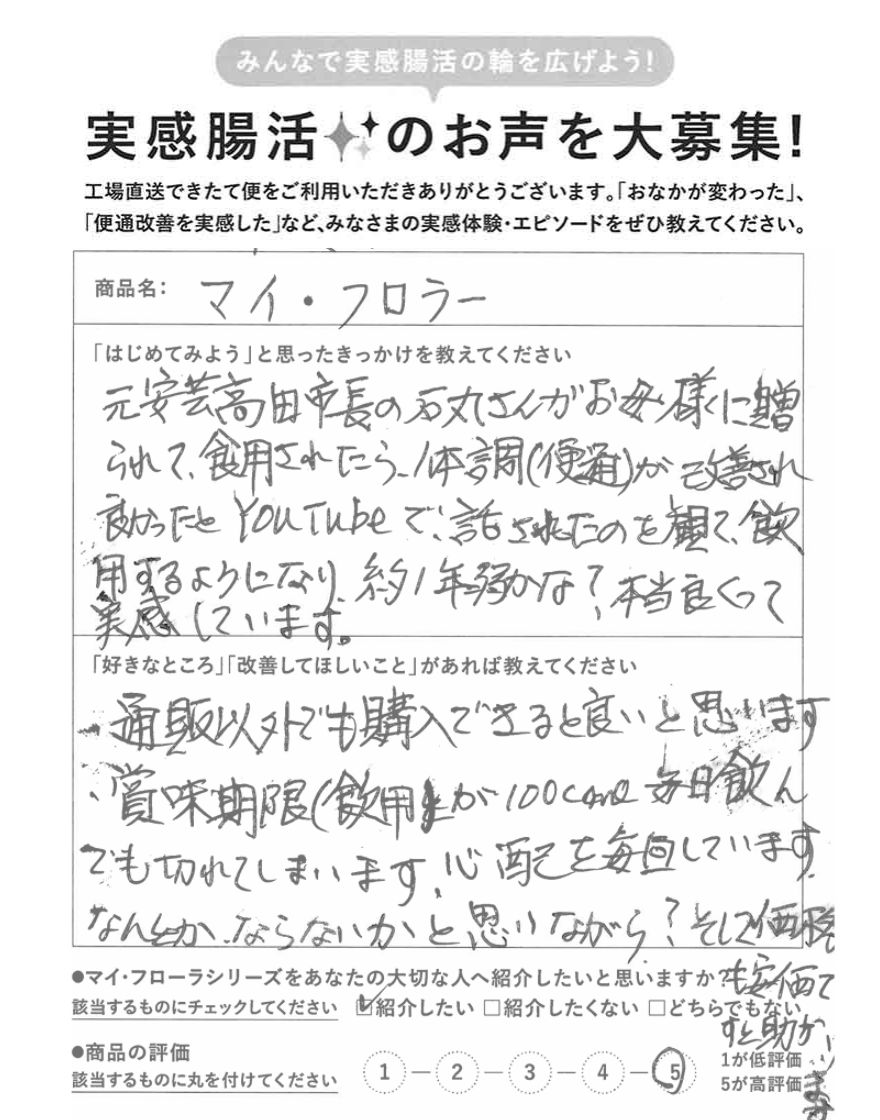 みんなで実感腸活の輪を広げよう!
実感腸活のお声を大募集!
工場直送できたて便をご利用いただきありがとうございます。「おなかが変わった」、
「便通改善を実感した」など、みなさまの実感体験・エピソードをぜひ教えてください。
商品名: マイ・フロラー
「はじめてみよう」と思ったきっかけを教えてください
元安芸高田市長の石丸さんがお母様に贈
られて、飲用されたら、体調(便通)が改善され
良かったと YouTubeで、話されたのを観て、飲
用するようになり、約1年弱かな?本当良くって
実感しています。
「好きなところ」「改善してほしいこと」があれば教えてください
・通販以外でも購入できると良いと思います
・賞味期限(飲用)が100cane 毎日飲ん
でも切れてしまいます。心配を毎回しています。
なんとか、ならないかと思いながら?そして価格
も安価で
すと助か
ります
●マイ・フローラシリーズをあなたの大切な人へ紹介したいと思いますか?
該当するものにチェックしてください ☑紹介したい □紹介したくない □どちらでもない
●商品の評価
該当するものに丸を付けてください 1 ー 2 ー 3 ー 4 ー 5 1が低評価
5が高評価